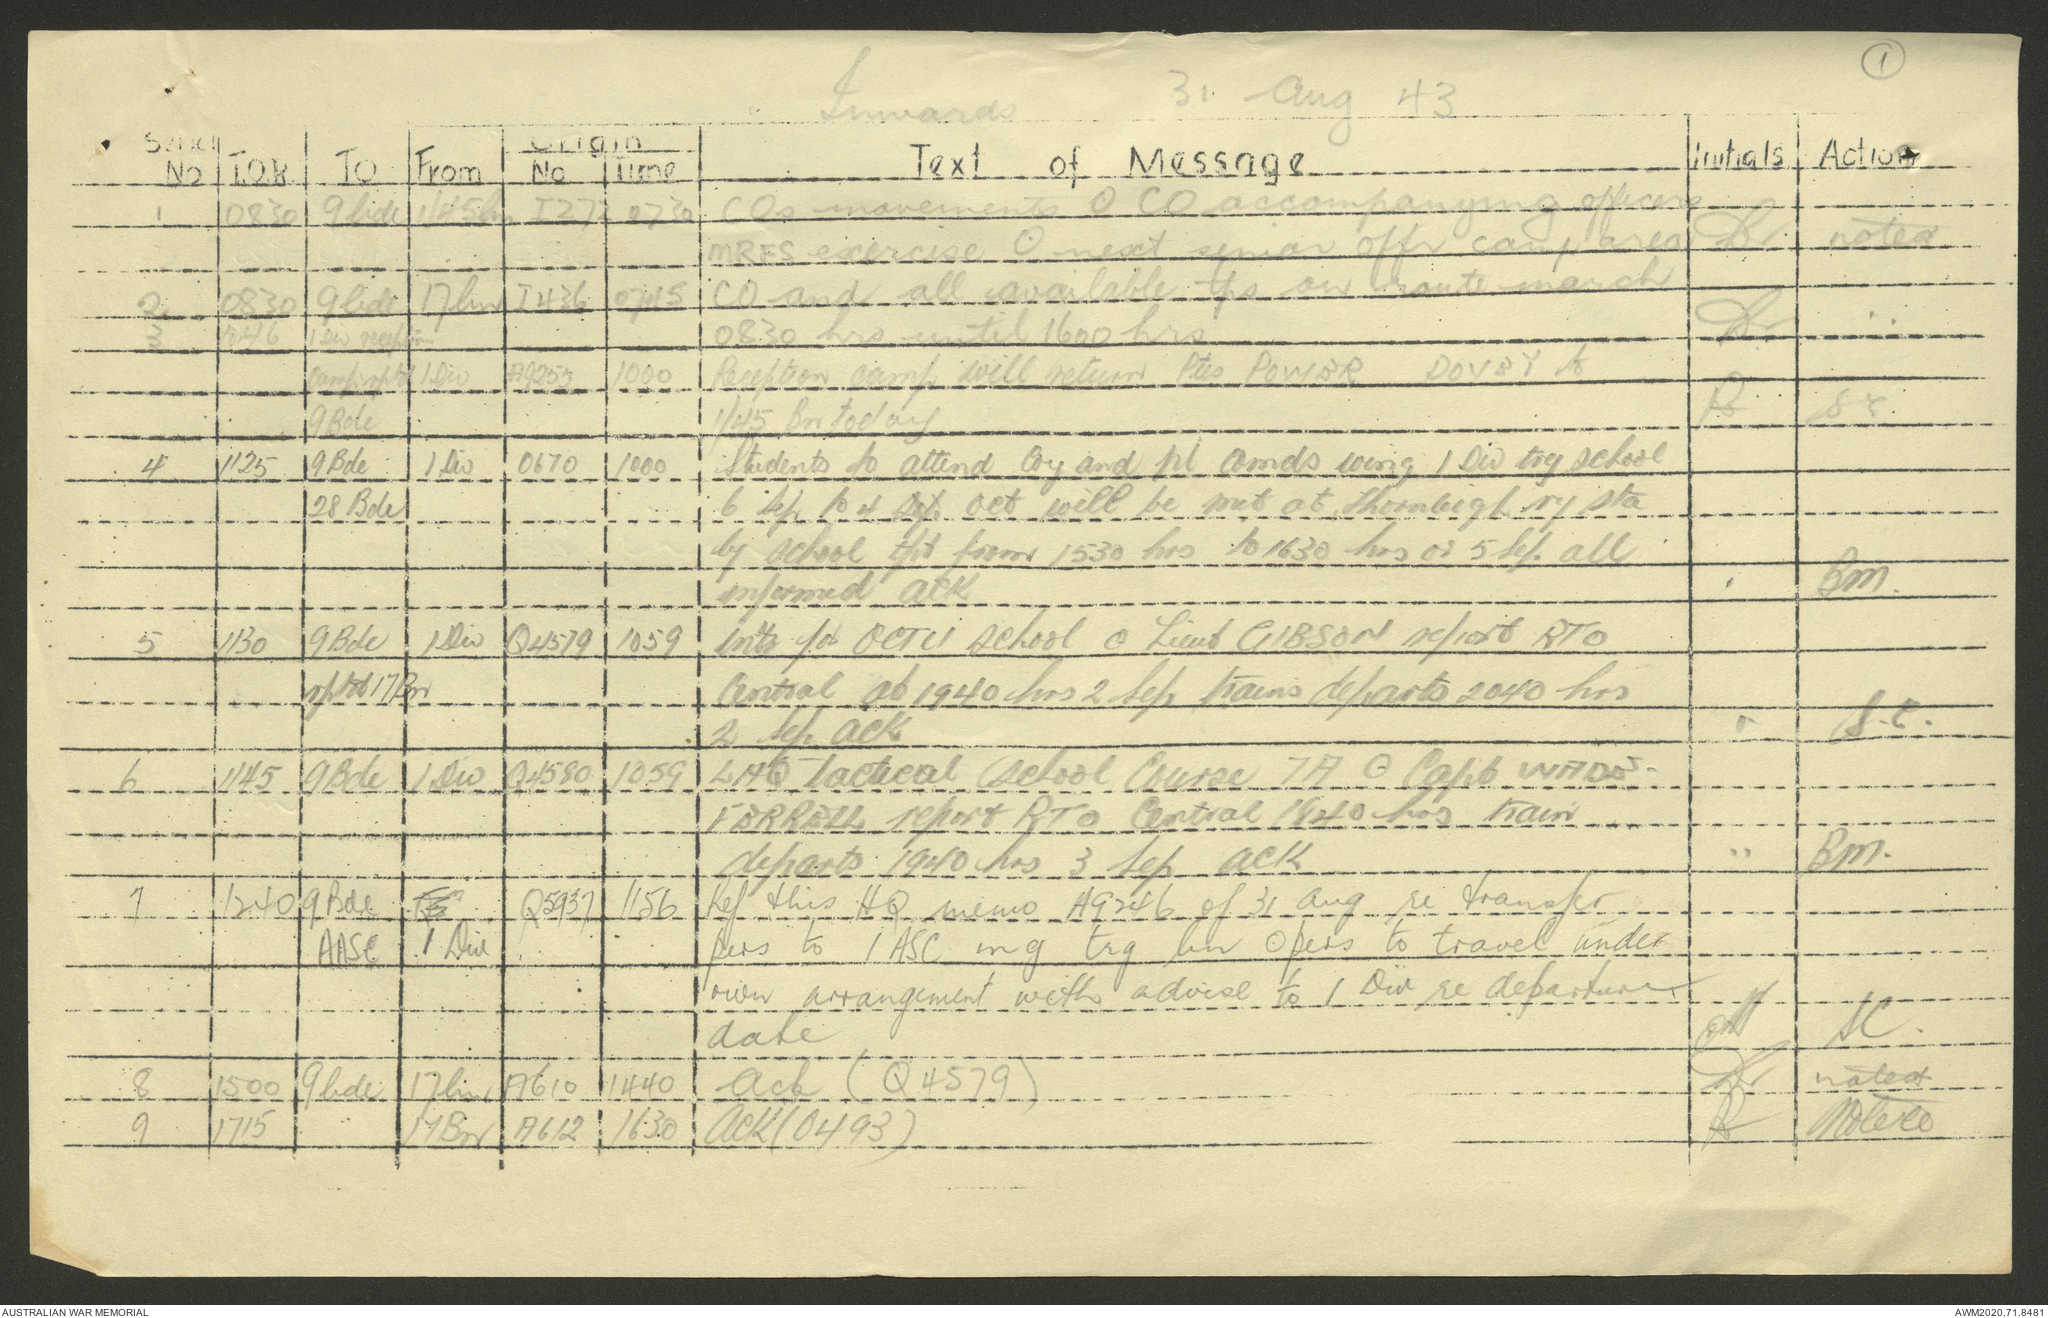 1
Inwards 31 Aug 43
Serial No T.O.R TO From Origin No Time Text of Message Initials Action
1 0830 9 bde 1/45 bn I27 0730 COs movements O CO accompanying officers
MRES exercise O next senior offr camp area noted
2 0830 9 bde 17 bn I436 0745 CO and all available tps on route march
3 1046 1 Div reception 0830 hrs until 1600 hrs "
camp rptd 1 Div A9255 1000 Reception camp will return Ptes POWER DOVEY to
9 Bde 1/45 Bn today SC
4 1125 9 Bde 1 Div O670 1000 Students to attend Coy and Pl Comds wing 1 Div trg school
28 Bde 6 Sep to 4 Sep Oct will be met at Thornleigh ry sta
by school tpt from 1530 hrs to 1630 hrs on 5 Sep. all
informed ACK " BM.
5 1130 9 Bde 1 Div Q4579 1059 for OCTU School O Lieut GIBSON report RTO
rptd 17 Bn Central at 1940 hrs 2 Sep trains departs 2040 hrs
2 Sep. ACK " S.C.
6 1145 9 Bde 1 Div Q4580 1059 LHQ Tactical School Course 7A O Capt WADE-
FERRELL report RTO Central 1840 hrs train
departs 1940 hrs 3 Sep ACK " BM.
7 1240 9 Bde Q5937 1156 Ref this HQ memo A9246 of 31 Aug re transfer
AASC 1 Div pers to 1 ASC trg bn O pers to travel under
arrangement with advise to 1 Div re departure
date SC.
8 1500 9 bde 17 bn A610 1440 Ack (Q4579) noted
9 1715 " 17 Bn A612 1630 ACK (0493) Noted
AUSTRALIAN WAR MEMORIAL AWM2020.71.8481